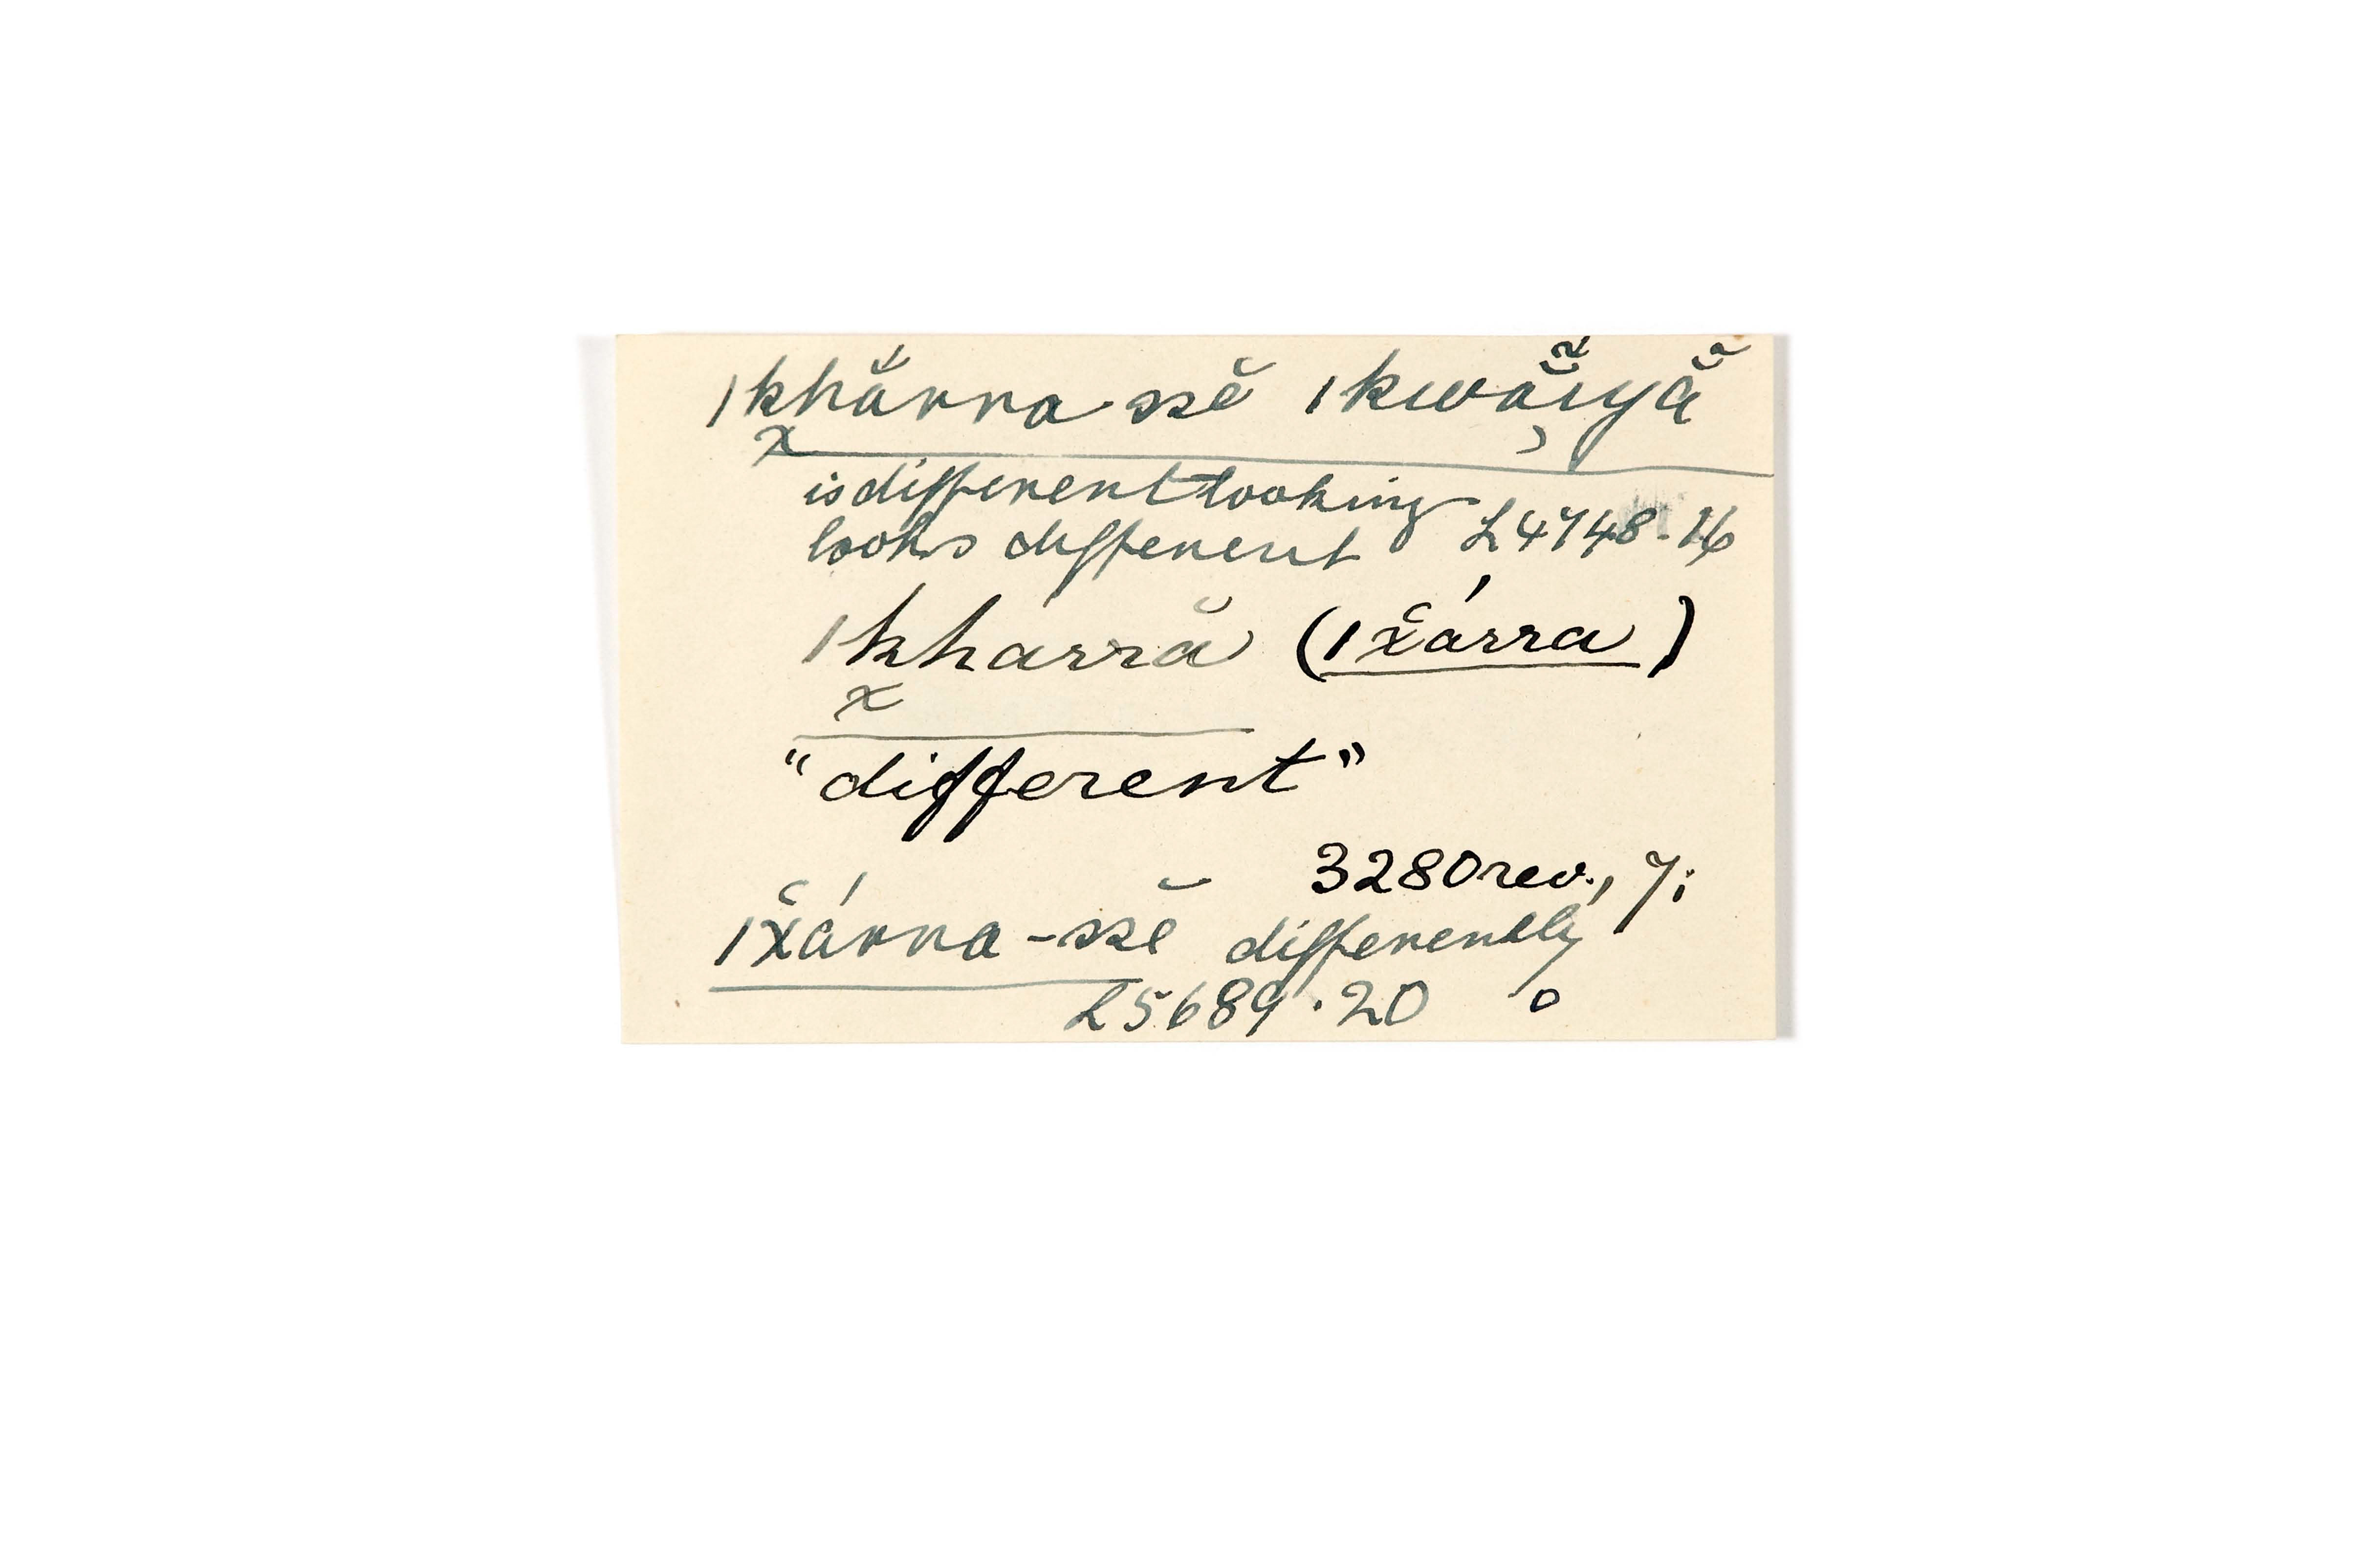 ıkhắrra-ssĕ ıkwắ̃ıyã̆
x ̯
is different looking
looks different L4748.16
ıkharră (ıx̆́arra)
x
"different"
3280rev., 7;
ıx̆árra-ssĕ differently
L5689.20 o